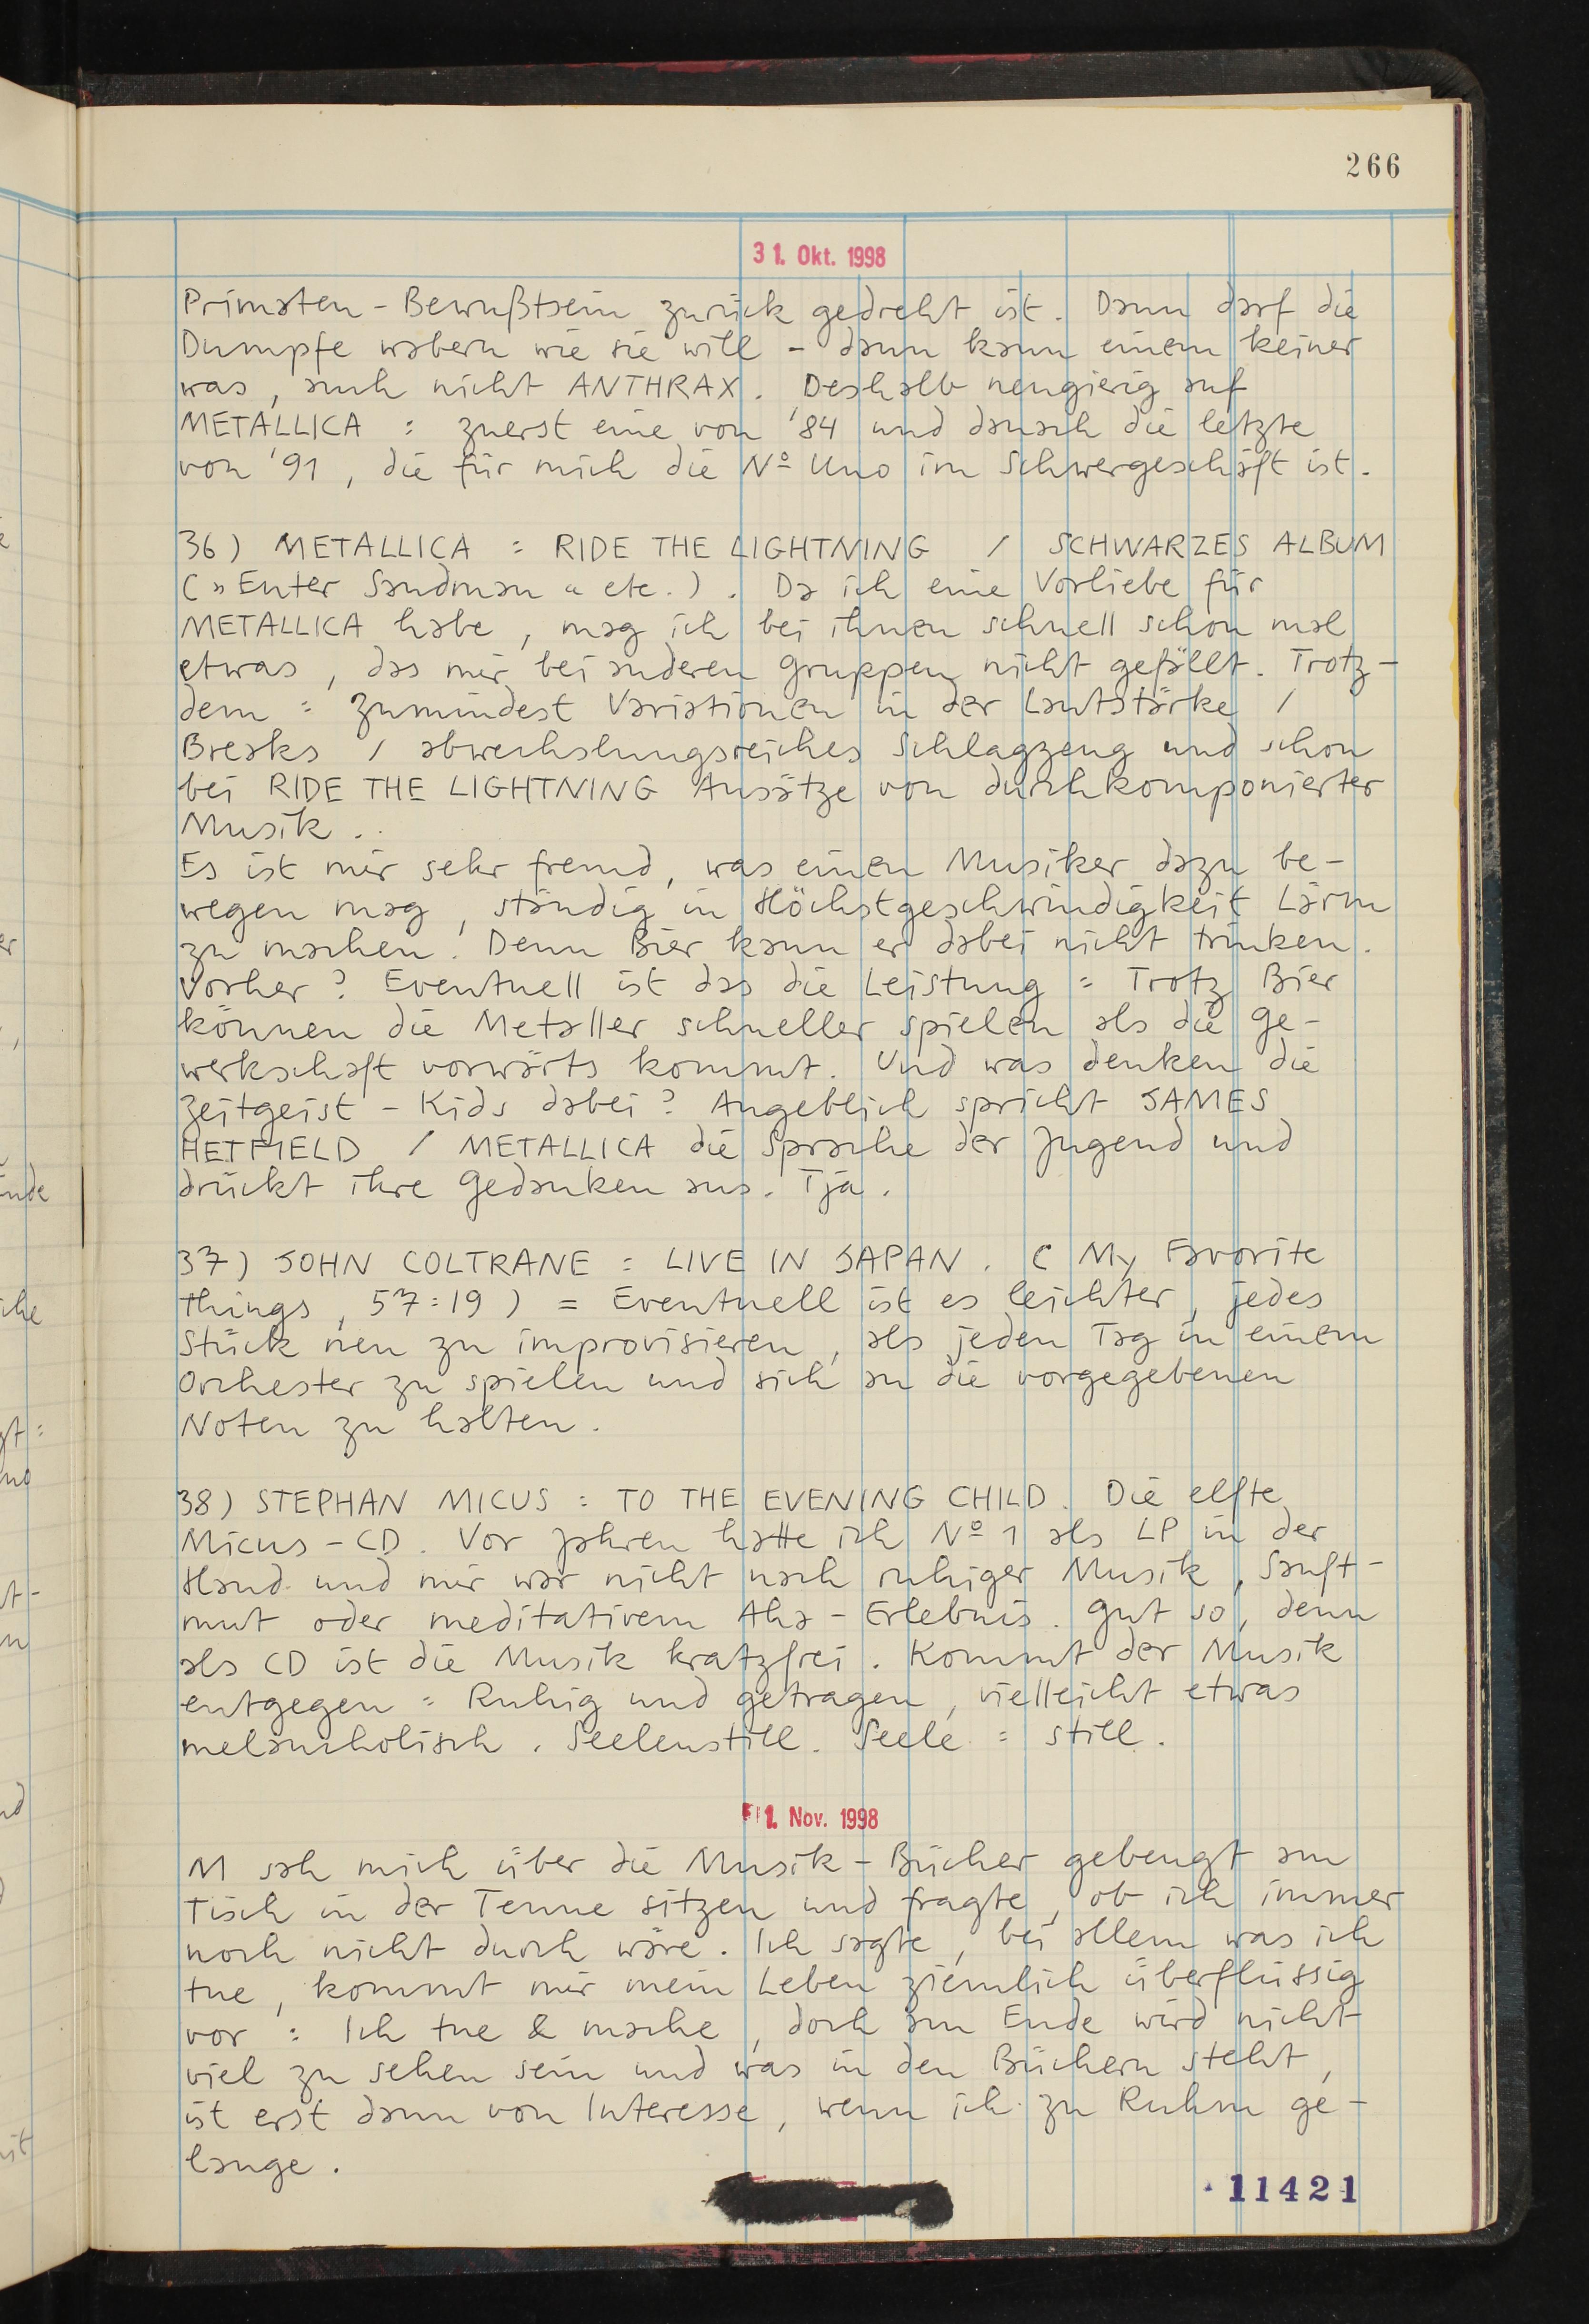 266
31. Okt. 1998
Primaten-Bewußtsein zurück gedreht ist. Dann darf die
Dumpfe wabern wie sie will - dann kann einem keiner
was, auch nicht ANTHRAX. Deshalb neugierig auf
METALLICA : zuerst eine von '84 und danach die letzte
von '91, die für mich die Nº Uno im Schwergeschäft ist.
36) METALLICA : RIDE THE LIGHTNING / SCHWARZES ALBUM
(»Enter Sandman« etc.). Da ich eine Vorliebe für
METALLICA habe, mag ich bei ihnen schnell schon mal
etwas, das mir bei anderen Gruppen nicht gefällt. Trotz-
dem : Zumindest Variationen in der Lautstärke /
Breaks / abwechslungsreiches Schlagzeug und schon
bei RIDE THE LIGHTNING Ansätze von durchkomponierter
Musik.
Es ist mir sehr fremd, was einen Musiker dazu be-
wegen mag, ständig in Höchstgeschwindigkeit Lärm
zu machen. Denn Bier kann er dabei nicht trinken.
Vorher? Eventuell ist das die Leistung : Trotz Bier
können die Metaller schneller spielen als die Ge-
werkschaft vorwärts kommt. Und was denken die
Zeitgeist-Kids dabei? Angeblich spricht JAMES
HETFIELD / METALLICA die Sprache der Jugend und
drückt ihre Gedanken aus. Tja.
37) JOHN COLTRANE : LIVE IN JAPAN. (My Favorite
Things, 57:19) = Eventuell ist es leichter, jedes
Stück neu zu improvisieren, als jeden Tag in einem
Orchester zu spielen und sich an die vorgegebenen
Noten zu halten.
38) STEPHAN MICUS : TO THE EVENING CHILD. Die elfte
Micus-CD. Vor Jahren hatte ich Nº 1 als LP in der
Hand und mir war nicht nach ruhiger Musik, Sanft-
mut oder meditativem Aha-Erlebnis. Gut so, denn
als CD ist die Musik kratzfrei. Kommt der Musik
entgegen : Ruhig und getragen, vielleicht etwas
melancholisch. Seelenstill. Seele : still.
1. Nov. 1998
M sah mich über die Musik-Bücher gebeugt am
Tisch in der Tenne sitzen und fragte, ob ich immer
noch nicht durch wäre. Ich sagte, bei allem was ich
tue, kommt mir mein Leben ziemlich überflüssig
vor : Ich tue & mache, doch am Ende wird nicht
viel zu sehen sein und was in den Büchern steht,
ist erst dann von Interesse, wenn ich zu Ruhm ge-
lange.
11421